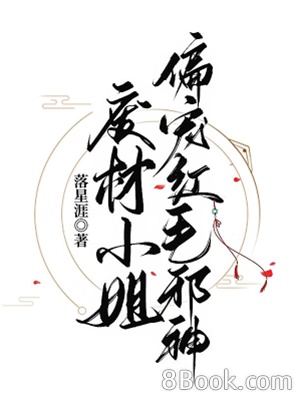 偏宠红毛邪神
废材小姐
落星涯◎著
8Book.com